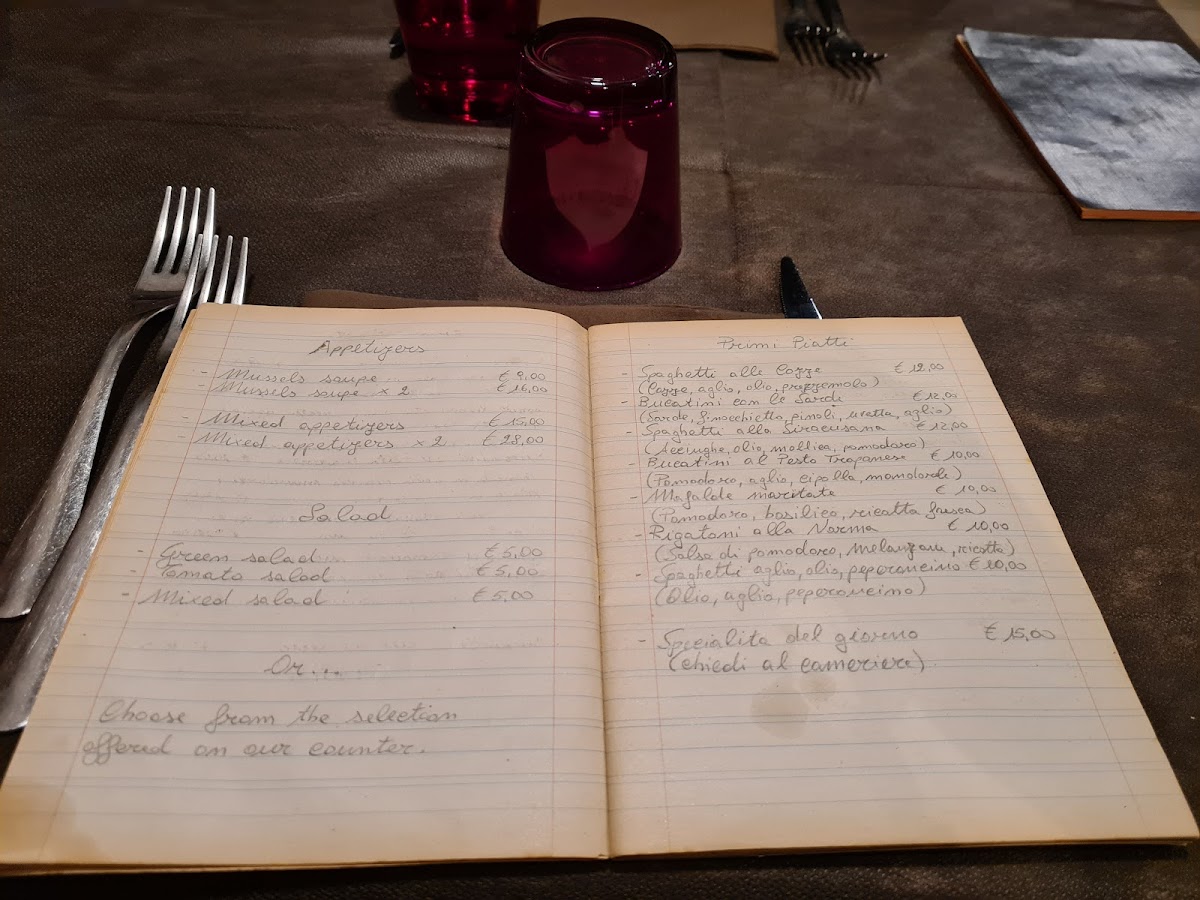 Appetizers
- Mussels soupe € 9,00
- Mussels soupe x 2 € 16,00
- Mixed appetizers € 15,00
- Mixed appetizers x 2 € 28,00
Salad
- Green salad € 5,00
- Tomato salad € 5,00
- Mixed salad € 5,00
Or...
Choose from the selection
offered on our counter.
Primi Piatti
- Spaghetti alle Cozze € 12,00
(Cozze, aglio, olio, prezzemolo)
- Bucatini con le Sarde € 12,00
(Sarde, finocchietto, pinoli, uvetta, aglio)
- Spaghetti alla Siracusana € 12,00
(Acciughe, olio, mollica, pomodoro)
- Bucatini al Pesto Trapanese € 10,00
(Pomodoro, aglio, cipolla, mandorle)
- Mafalde maritate € 10,00
(Pomodoro, basilico, ricotta fresca)
- Rigatoni alla Norma € 10,00
(Salsa di pomodoro, melanzane, ricotta)
- Spaghetti aglio, olio, peperoncino € 10,00
(Olio, aglio, peperoncino)
- Specialita del giorno € 15,00
(chiedi al cameriere)